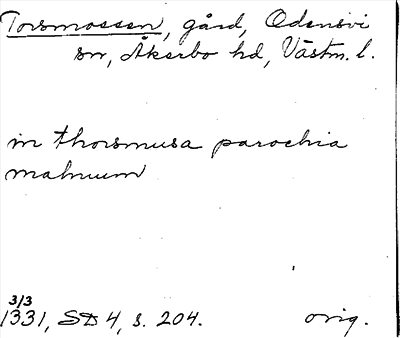 Torsmossen, gård, Odensvi
sn, Åkerbo hd, Västm. l.
in thorsmusa parochia
malmum
3/3
1331, SD 4, s. 204. orig.